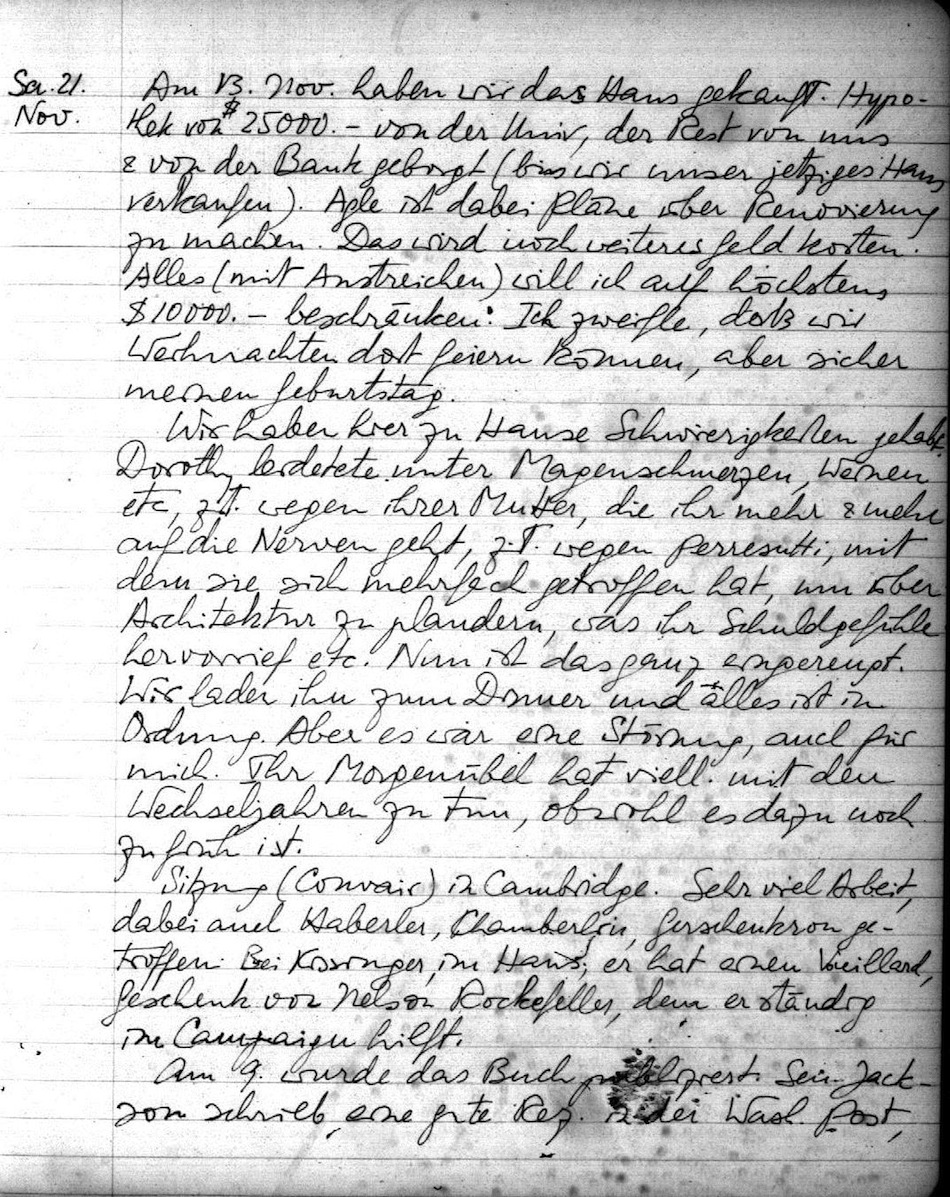 Sa. 21. Nov.
Am 13. Nov. haben wir das Haus gekauft. Hypo-
thek von $ 25000.- von der Univ, der Rest von uns
& von der Bank geborgt (bis wir unser jetziges Haus
verkaufen). Aple ist dabei Pläne über Renovierung
zu machen. Das wird noch weiteres Geld kosten.
Alles (mit Anstreichen) will ich auf höchstens
$10000.- beschränken. Ich zweifle, daß wir
Weihnachten dort feiern können, aber sicher
meinen Geburtstag.
Wir haben hier zu Hause Schwierigkeiten gehabt.
Dorothy leidetete unter Magenschmerzen, Weinen
etc, z.T. wegen ihrer Mutter, die ihr mehr & mehr
auf die Nerven geht, z.T. wegen Perresutti, mit
dem sie sich mehrfach getroffen hat, um über
Architektur zu plaudern, was ihr Schuldgefühle
hervorrief etc. Nun ist das ganz eingerenkt.
Wir laden ihn zum Dinner und alles ist in
Ordnung. Aber es war eine Störung, auch für
mich. Ihr Morgenübel hat viell. mit den
Wechseljahren zu tun, obwohl es dazu noch
zu früh ist.
Sitzung (Convair) in Cambridge. Sehr viel Arbeit,
dabei auch Haberler, Chamberlin, Gerschenkron ge-
troffen. Bei Kissinger, im Haus, er hat einen Vuillard,
Geschenk von Nelson Rockefeller, dem er ständig
im Campaign hilft.
Am 9. wurde das Buch publiziert. Sen. Jack-
son schrieb eine gute Rez. in der Wash. Post,